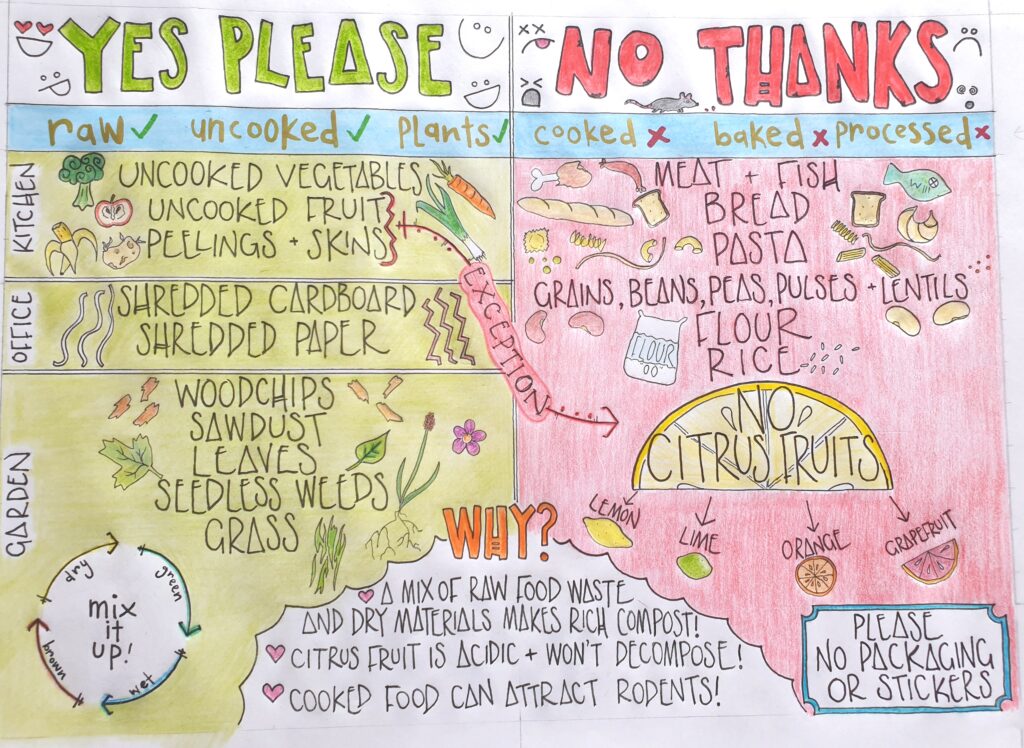 YES PLEASE
raw uncooked Plants
KITCHEN
UNCOOKED VEGETABLES
UNCOOKED FRUIT
PEELINGS + SKINS
OFFICE
SHREDDED CARDBOARD
SHREDDED PAPER
GARDEN
WOODCHIPS
SAWDUST
LEAVES
SEEDLESS WEEDS
GRASS
dry
green
wet
brown
mix
it
up!
EXCEPTION
NO THANKS
cooked baked processed
MEAT + FISH
BREAD
PASTA
GRAINS, BEANS, PEAS, PULSES + LENTILS
FLOUR
FLOUR
RICE
NO
CITRUS FRUITS
LEMON
LIME
ORANGE
GRAPEFRUIT
WHY?
A MIX OF RAW FOOD WASTE
AND DRY MATERIALS MAKES RICH COMPOST!
CITRUS FRUIT IS ACIDIC + WON'T DECOMPOSE!
COOKED FOOD CAN ATTRACT RODENTS!
PLEASE
NO PACKAGING
OR STICKERS